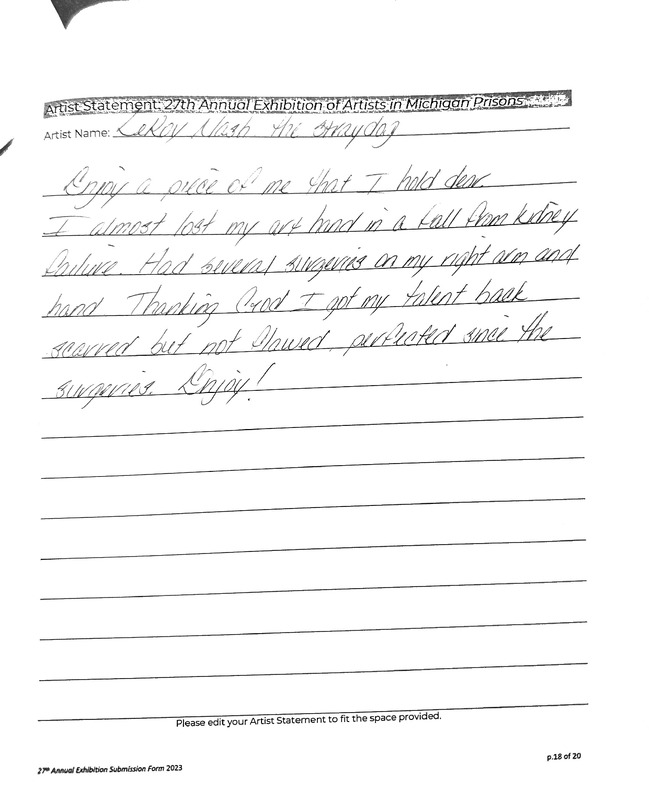 Artist Statement: 27th Annual Exhibition of Artists in Michigan Prisons
Artist Name: LeRoy Nash the straydog
Enjoy a piece of me that I hold dear.
I almost lost my art hand in a fall from kidney
failure. Had several surgeries on my right arm and
hand Thanking God I got my talent back
scarred but not flawed, perfected since the
surgeries. Enjoy!
Please edit your Artist Statement to fit the space provided.
27th Annual Exhibition Submission Form 2023
p.18 of 20